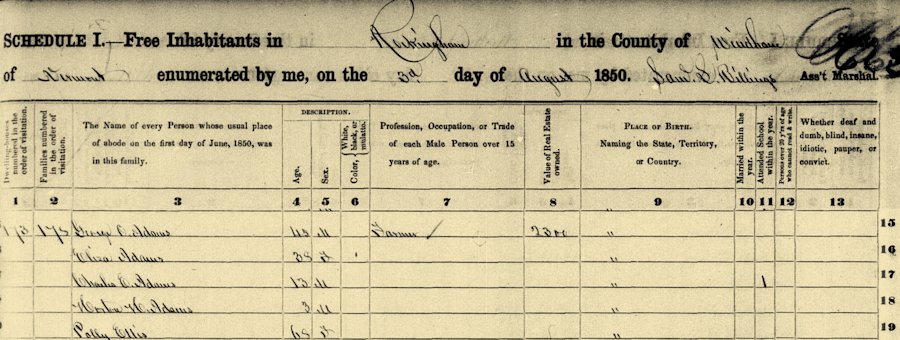 SCHEDULE I.—Free Inhabitants in Rockingham in the County of Windham
of Vermont enumerated by me, on the 3d day of August 1850. Ass't Marshal.
Dwelling-houses numbered in the order of visitation.
Families numbered in the order of visitation.
The Name of every Person whose usual place of abode on the first day of June, 1850, was in this family.
DESCRIPTION.
Age.
Sex.
Color, White, black, or mulatto.
Profession, Occupation, or Trade of each Male Person over 15 years of age.
Value of Real Estate owned.
PLACE OF BIRTH.
Naming the State, Territory, or Country.
Married within the year.
Attended School within the year.
Persons over 20 y'rs of age who cannot read & write.
Whether deaf and dumb, blind, insane, idiotic, pauper, or convict.
1 2 3 4 5 6 7 8 9 10 11 12 13
175 George O. Adams M Farmer 2300 " 15
Eliza Adams 38 F " 16
Charles O. Adams 13 M " 1 17
H. Adams 3 M " 18
Polly Ellis 68 F " 19